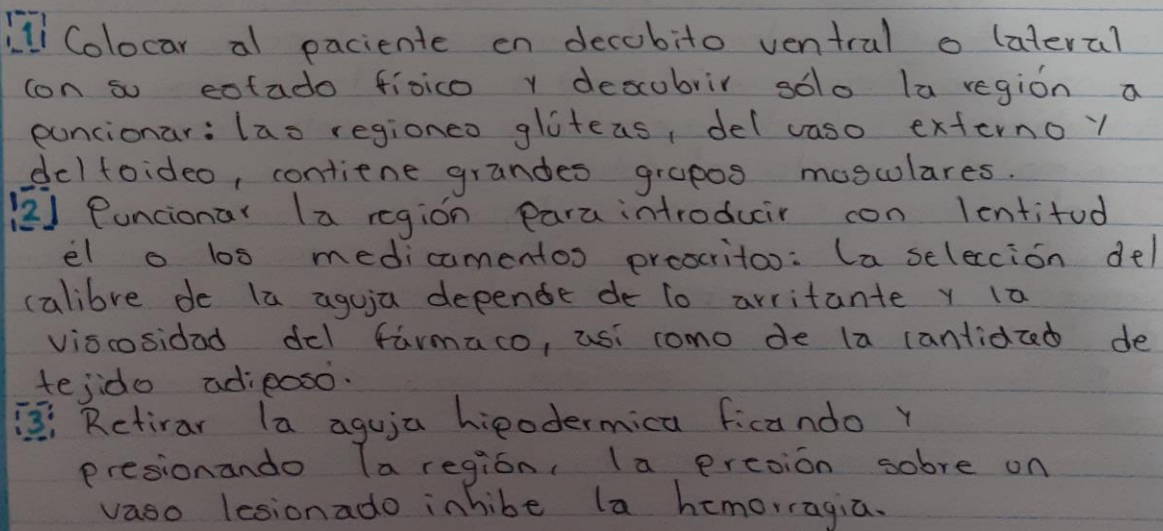 1 Colocar al paciente en decubito ventral o lateral
con su estado físico y descubrir sólo la región a
puncionar: las regiones glúteas, del vaso externo y
deltoideo, contiene grandes grupos musculares.
2 Puncionar la región para introducir con lentitud
él o los medicamentos prescritos: La selección del
calibre de la aguja depende de lo arritante y la
viscosidad del fármaco, así como de la cantidad de
tejido adiposo.
3 Retirar la aguja hipodermica ficando y
presionando la región, la presión sobre un
vaso lesionado inhibe la hemorragia.